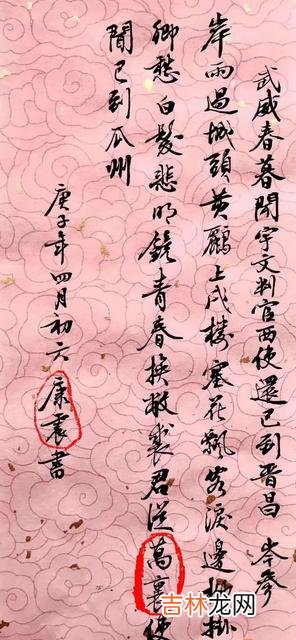 武威春暮聞宇文判官西使還已到晋昌 岑參
岸雨過城頭黃鸝上戍樓塞花飄客淚邊柳掛
鄉愁白髮悲明鏡青春換敝裘君從萬裏使
聞已到瓜州
庚子年四月初六 康震書
吉林龙网